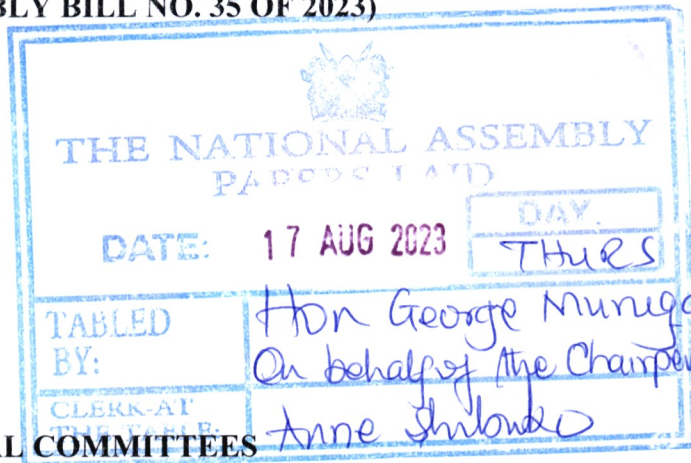 BLY BILL NO. 35 OF 2023)
THE NATIONAL ASSEMBLY
PAPERS LAID
DATE: 17 AUG 2023
DAY.
THURS
TABLED BY:
Hon George
On behalf of the Chairper
CLERK-AT THE-TABLE:
Anne
AL COMMITTEES